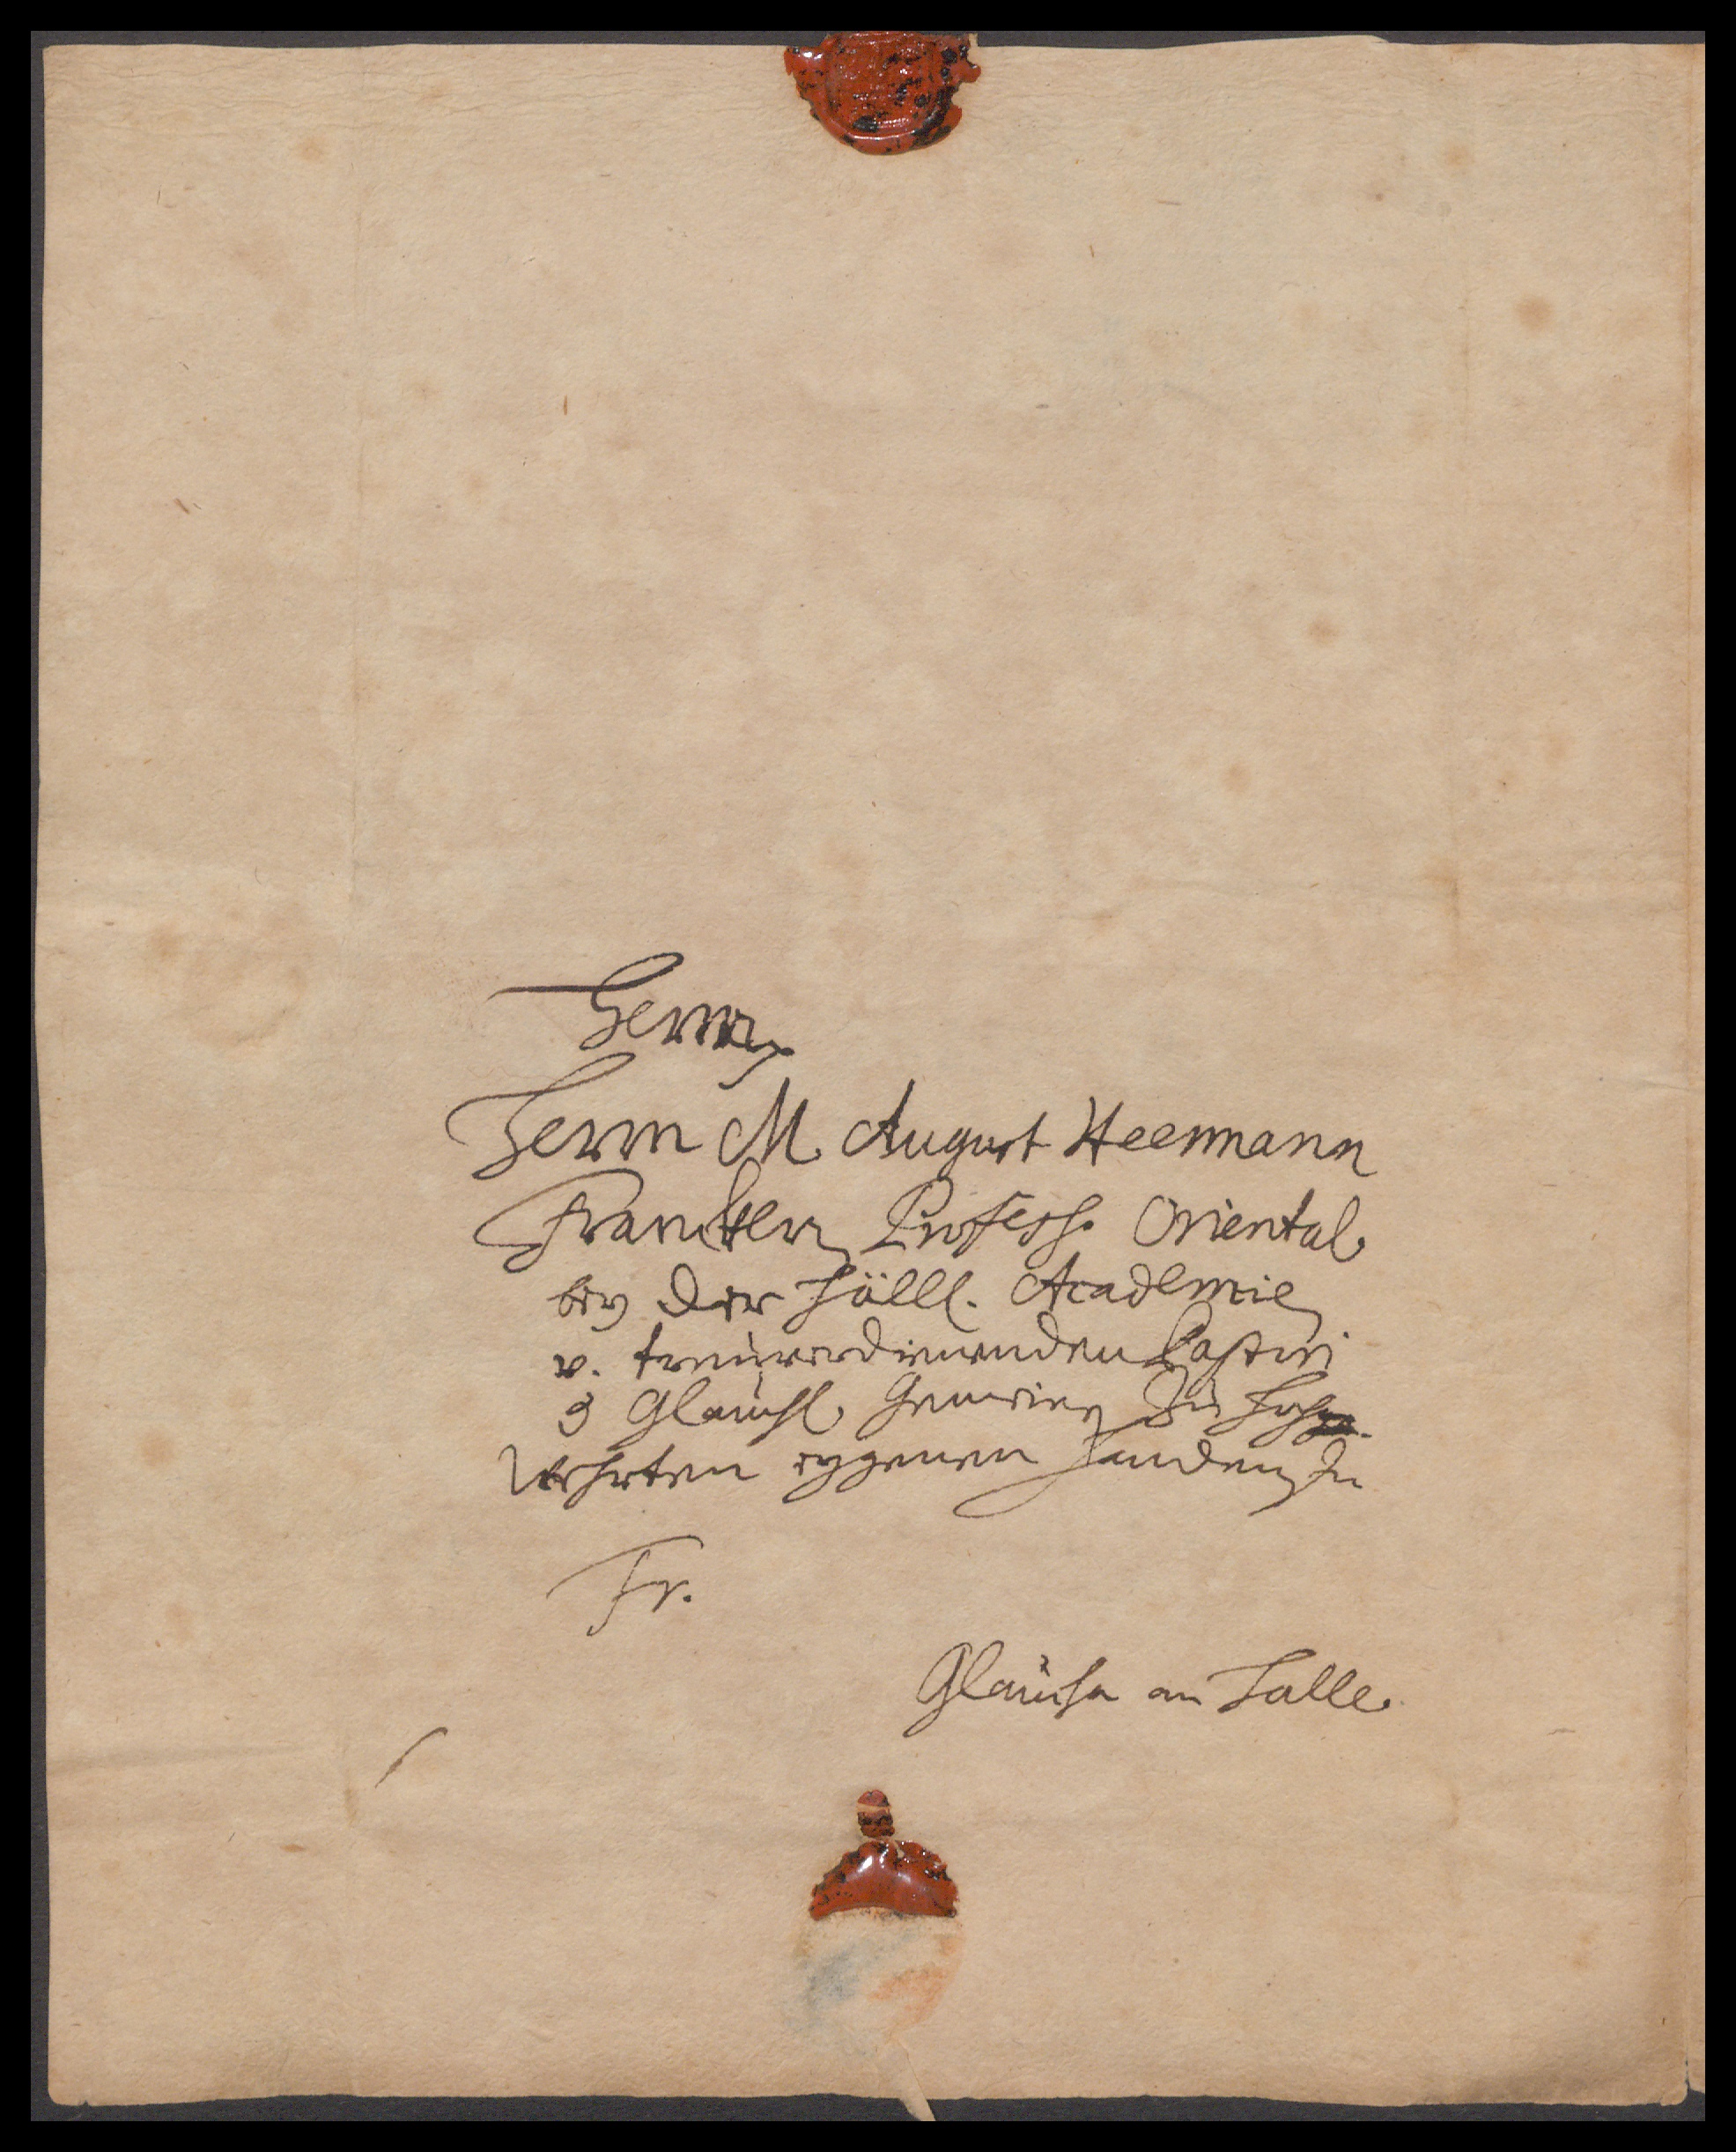 Herrn
Herrn M. August Heermann
Francken Profess. Oriental.
bey der Häll. Academie
v. treuverdienenden Pastori
d Glauch. Gemeine Zu hoch
Wehrten eygenen Handen Zu
Fr.
Glaucha an Halle.